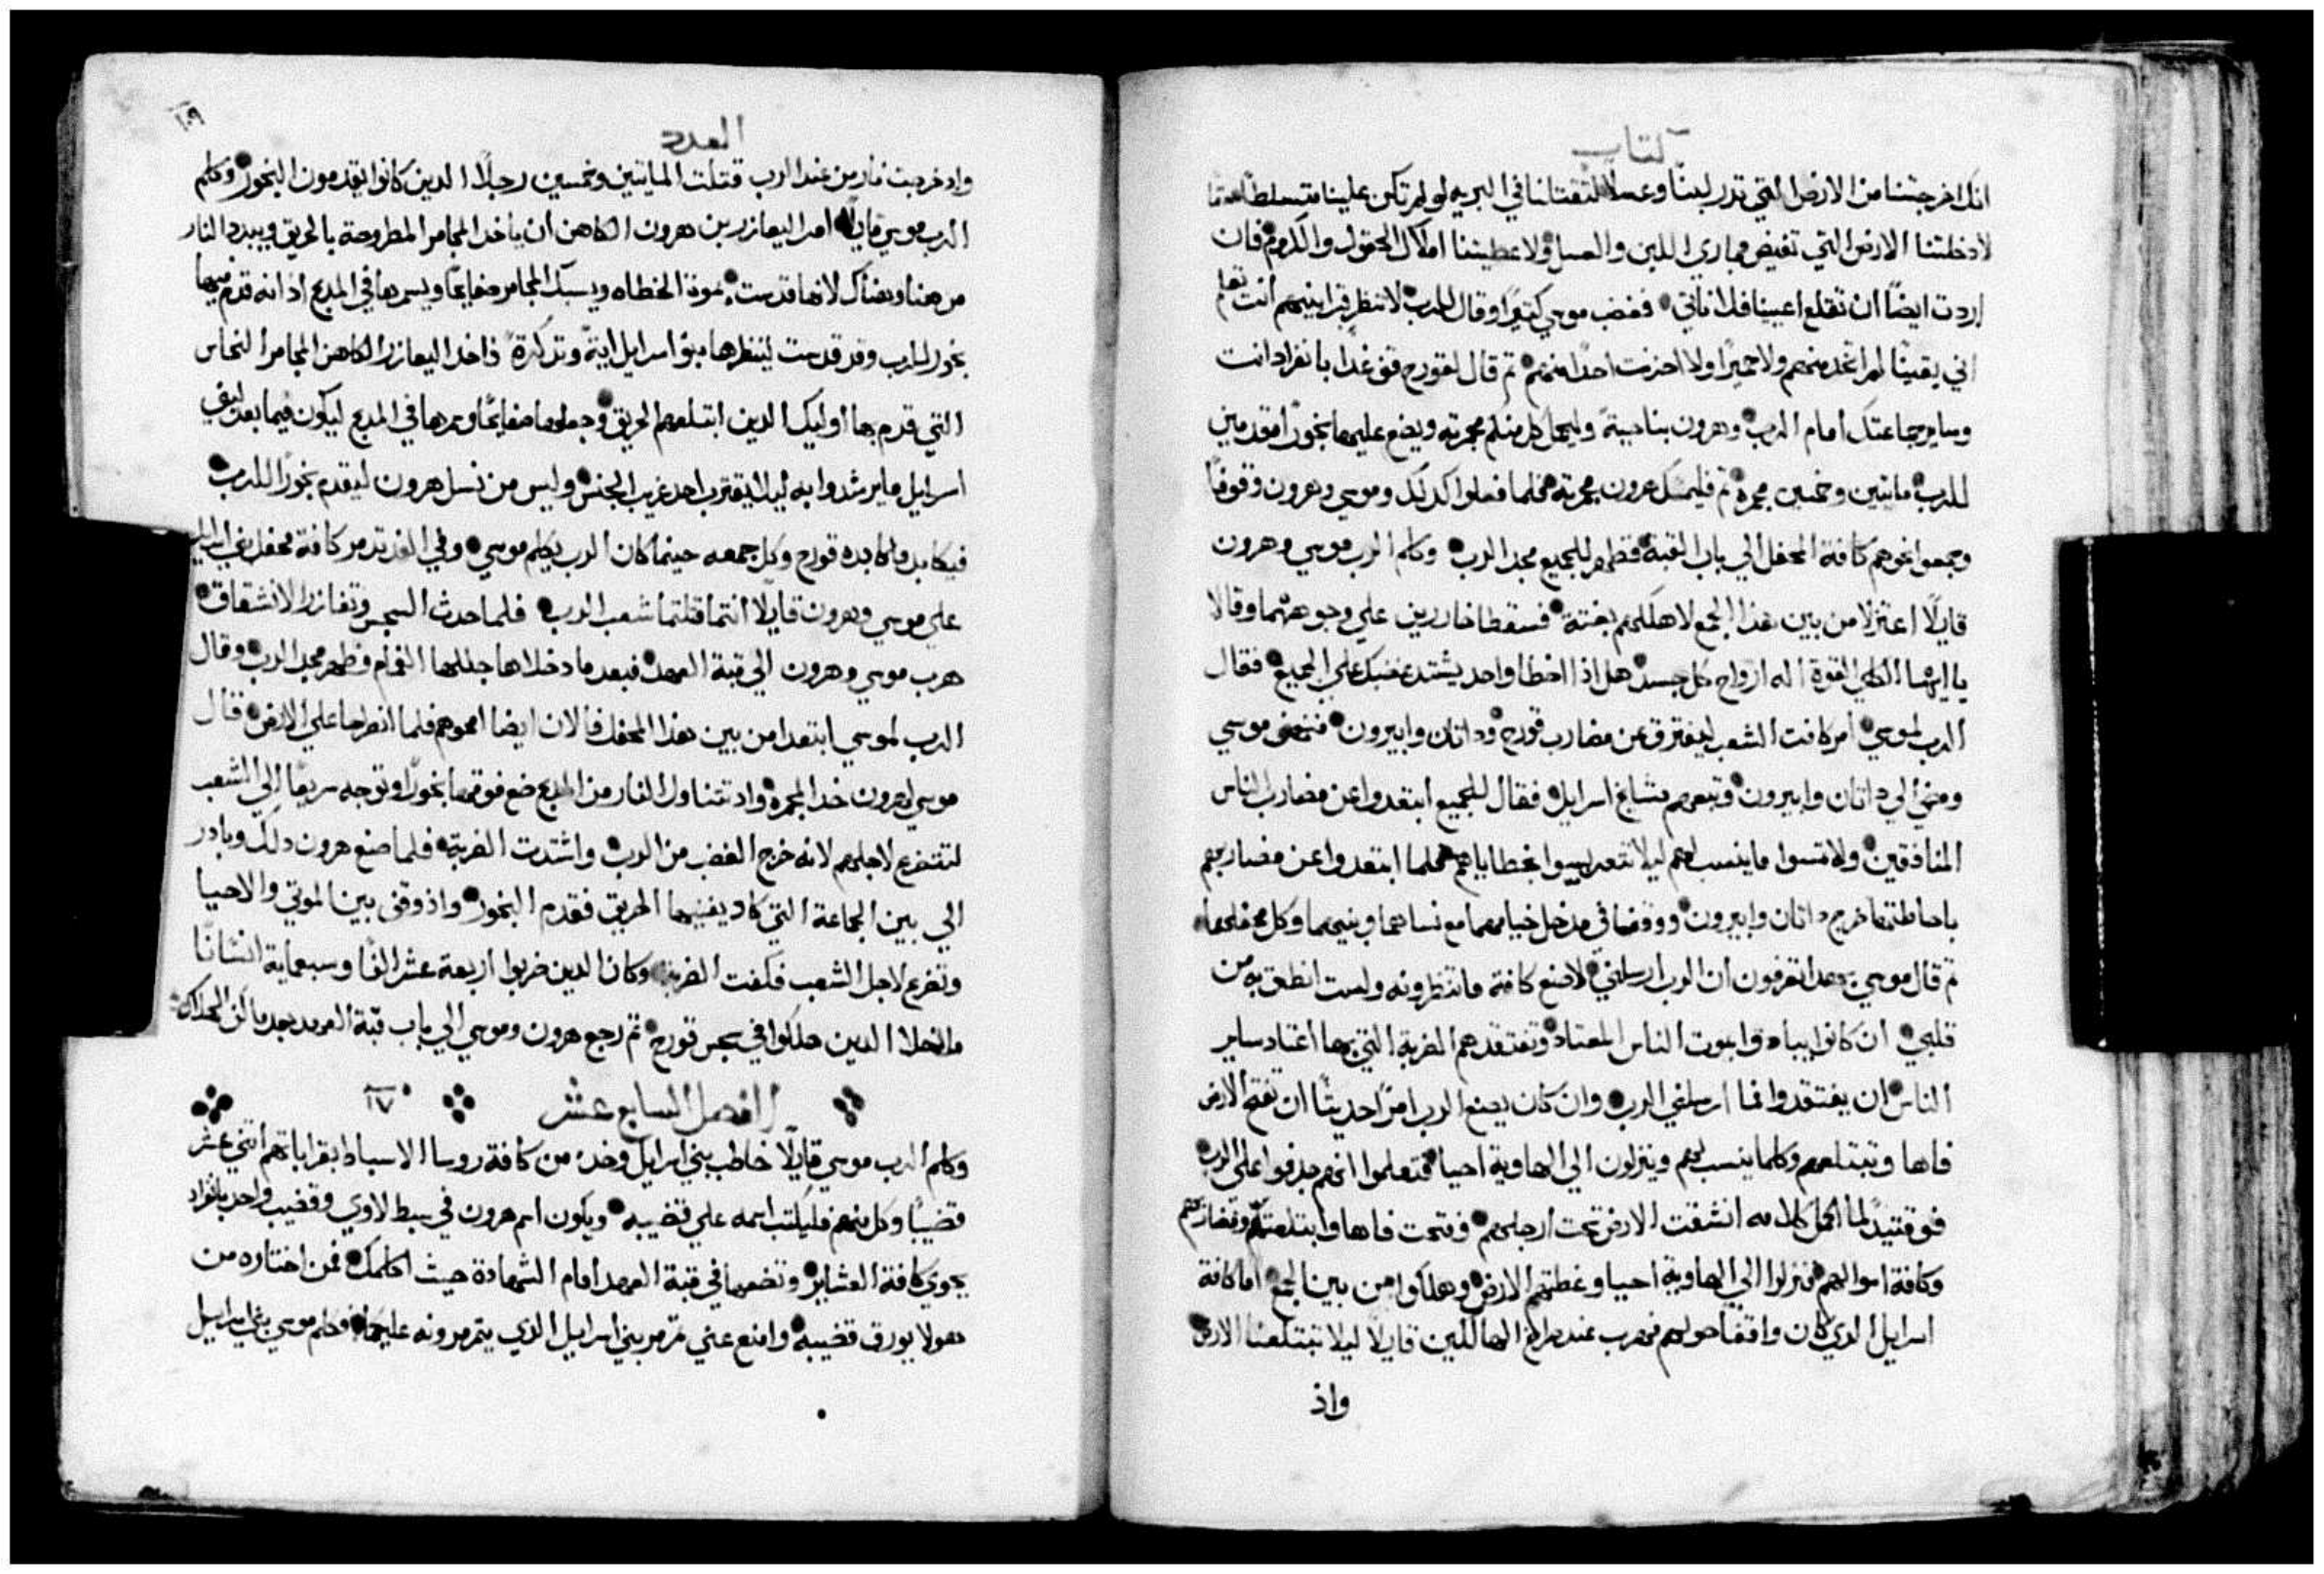 كتاب
انك اخرجتنا من الارض التي تدر لبنًا وعسلًا لتقتلنا في البريه لو لم تكن علينا متسلطًا
لادخلتنا الارض التي تفيض مجاري اللبن والعسل ولاعطيتنا املاك الحقول والكروم فان
اردت ايضًا ان تقلع اعيننا فلا ناتي فغضب موسي كثيرًا وقال للرب لا تنظر قرابينهم انت تعلم
اني يقينًا لم اتخد منهم ولا حميرًا ولا احزنت احدًا منهم ثم قال لقورح قف غدًا بانفراد انت
وساير جماعتك امام الرب وهرون بناحية وليحمل كل منكم مجمرته ويضع عليها بخورًا مقدمين
للرب مايتين وخمسين مجمرة ثم فليمسك هرون مجمرته فلما فعلوا كدلك وموسي وهرون وقوفًا
وجمعوا نحوهم كافة المحفل الي باب القبة فظهر للجميع مجد الرب وكلم الرب موسي وهرون
قايلًا اعتزلا من بين هدا الجمع لاهلكهم بغتة فسقطا خاررين علي وجوههما وقالا
يا ايها الكلي القوة اله ارواح كل جسد هل اذا اخطا واحد يشتد غضبك علي الجميع فقال
الرب لموسي امر كافت الشعب ليفترق عن مضارب قورح وداتان وابيرون فنهض موسي
ومضي الي داتان وابيرون وتبعهم مشايخ اسرايل فقال للجميع ابتعدوا عن مضارب الناس
المنافقين ولا تمسوا ما ينسب لهم ليلا بخطاياهم فلما ابتعدوا عن مضاربهم
باحاطتها خرج داتان وابيرون ووقفا في مدخل خيامهما مع نساهما وبنيهما وكل محفلهما
ثم قال موسي بهدا تعرفون ان الرب ارسلني لاصنع كافة ما تنظرونه ولست انطق به من
قلبي ان كانوا يبادوا بموت الناس المعتاد وتفتقدهم الضربة التي بها اعتاد ساير
الناس ان يفتقدوا فما ارسلني الرب وان كان يصنع الرب امرًا حديثًا ان تفتح الارض
فاها وتبتلعهم وكلما ينسب لهم وينزلون الي الهاوية احيا فتعلموا انهم جدفوا علي الرب
فوقتيدٍ لما اكمل كلامه انشقت الارض تحت ارجلهم وفتحت فاها وابتلعتهم ومضاربهم
وكافة اموالهم فنزلوا الي الهاوية احيا وغطتهم الارض وهلكوا من بين الجمع اما كافة
اسرايل الدي كان واقفا حولهم فهرب عند صراخ الهالكين قايلًا ليلا تبتلعنا الارض
واذ
١٠٩
العدد
واد خرجت نار من عند الرب قتلت المايتين وخمسين رجلًا الدين كانوا يقدمون البخور وكلم
الرب موسي قايلًا امر اليعازر بن هرون الكاهن ان ياخد المجامر المطروحة بالحريق ويبدد النار
من هنا وهناك لانها قدست بموت الخطاه ويسبك المجامر صفايحًا ويسمرها في المدبح اذ انه قدم فيها
بخور للرب وقد قدست لينظرها بنو اسرايل اية وتدكرة فاخد اليعازر الكاهن المجامر النحاس
التي قدم بها اوليك الدين ابتلعهم الحريق وجعلها صفايحًا وسمرها في المدبح ليكون فيما بعد لبني
اسرايل ما يرشدوا به ليلا يقترب احد غريب الجنس وليس من نسل هرون ليقدم بخورًا للرب
فيكابد ما كابده قورح وكل جمعه حينما كان الرب يكلم موسي وفي الغد تدمر كافة محفل بني اسرايل
علي موسي وهرون قايلًا انتما قتلتما شعب الرب فلما حدث السجس وتفازر الانشقاق
هرب موسي وهرون الي قبة العهد فبعد ما دخلاها جللها الغمام وظهر مجد الرب وقال
الرب لموسي ابتعدا من بين هدا المحفل فالان ايضا امحوهم فلما انطرحا علي الارض قال
موسي لهرون خد المجمرة واد تتناول النار من المدبح ضع فوقها بخورًا وتوجه سريعًا الي الشعب
لتتضرع لاجلهم لانه خرج الغضب من الرب واشتدت الضربة فلما صنع هرون دلك وبادر
الي بين الجماعة التي كاد يفنيها الحريق فقدم البخور واذ وقف بين الموتي والاحيا
وتضرع لاجل الشعب فكفت الضربة وكان الدين ضربوا اربعة عشر الفًا وسبعماية انسانًا
ما خلا الدين هلكوا في سجس قورح ثم رجع هرون وموسي الي باب قبة العهد بعد ما كف الهلاك
الفصل السابع عشر ١٧
وكلم الرب موسي قايلًا خاطب بني اسرايل وخد من كافة روسا الاسباط بقراباتهم اثني عشر
قضيبًا وكل منهم فليكتب اسمه علي قضيبه ويكون اسم هرون في سبط لاوي وقضيب واحد بانفراد
يحوي كافة العشاير وتضعها في قبة العهد امام الشهادة حيث اكلمك فمن اختاره من
هولا يورق قضيبه وامنع عني تدمر بني اسرايل الدي يتدمرونه عليكما فكلم موسي بني اسرايل